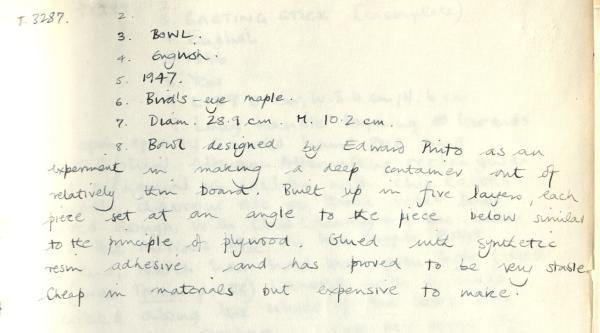 T. 3287.
2.
3. BOWL.
4. English.
5. 1947.
6. Bird's-eye maple.
7. Diam. 28.9 cm. H. 10.2 cm.
8. Bowl designed by Edward Pinto as an
experiment in making a deep container out of
relatively thin board. Built up in five layers, each
piece set at an angle to the piece below similar
to the principle of plywood. Glued with synthetic
resin adhesive and has proved to be very stable.
Cheap in materials but expensive to make.